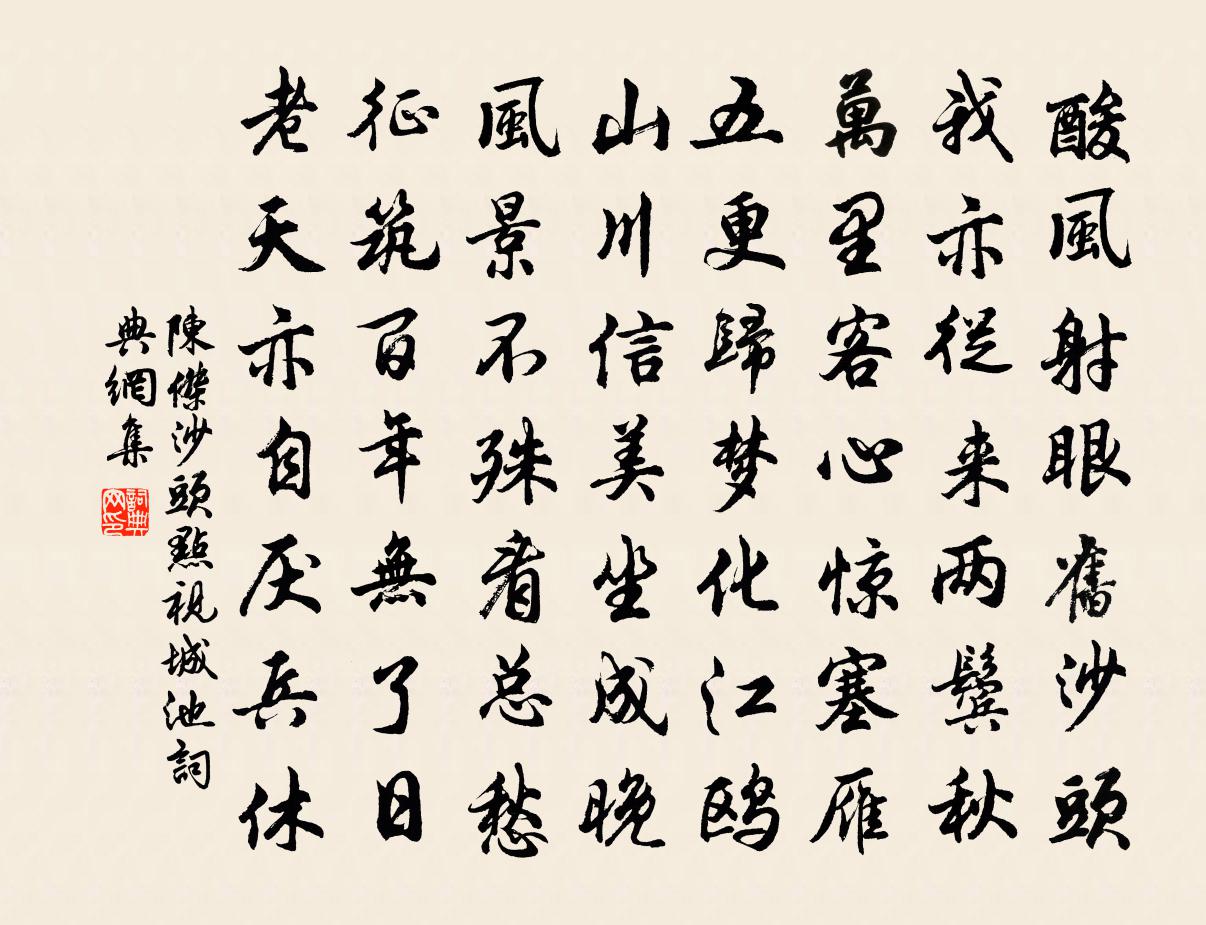 酸風射眼舊沙頭
我亦從来两鬢秋
萬里客心惊塞雁
五更歸梦化江鸥
山川信美坐成晚
風景不殊看总愁
征筑百年無了日
老天亦自厌兵休
陳傑沙頭點視城池詞
典網集
詞典
网印